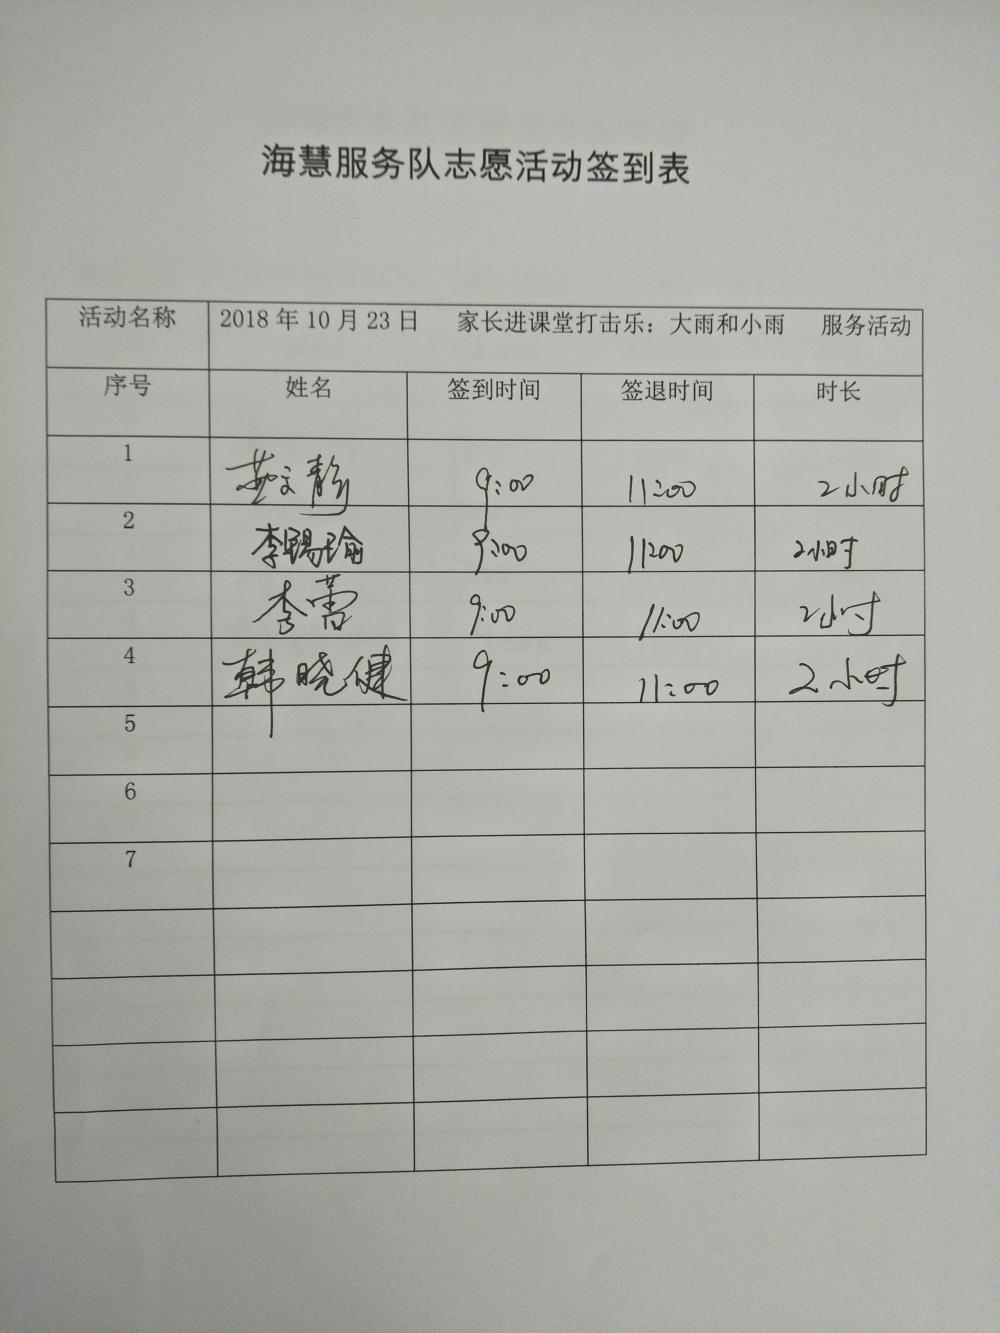 海慧服务队志愿活动签到表
活动名称 2018年10月23日 家长进课堂打击乐：大雨和小雨 服务活动
序号 姓名 签到时间 签退时间 时长
1 文静 9:00 11:00 2小时
2 李赐瑜 9:00 11:00 2小时
3 李蕾 9:00 11:00 2小时
4 韩晓健 9:00 11:00 2小时
5
6
7